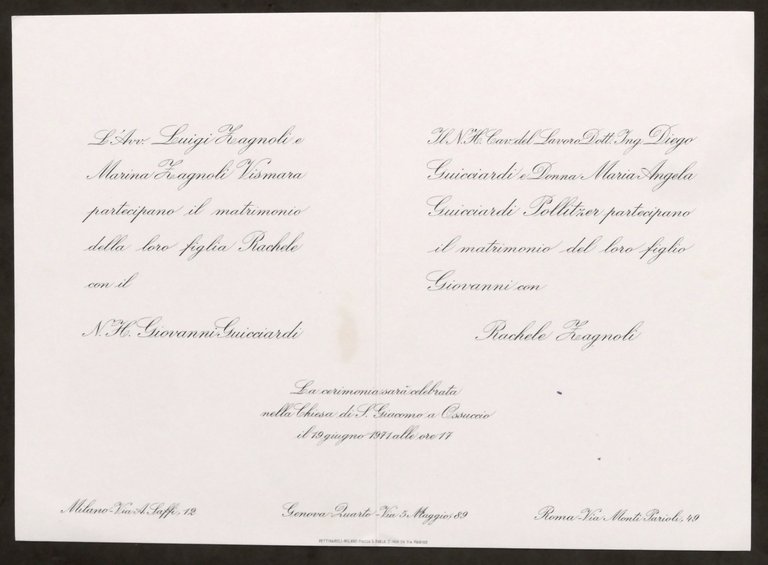 L'Avv. Luigi Zagnoli e
Marina Zagnoli Vismara
partecipano il matrimonio
della loro figlia Rachele
con il
N.H. Giovanni Guicciardi
Il N.H. Cav. del Lavoro Dott. Ing. Diego
Guicciardi e Donna Maria Angela
Guicciardi Pollitzer partecipano
il matrimonio del loro figlio
Giovanni con
Rachele Zagnoli
La cerimonia sarà celebrata
nella Chiesa di S. Giacomo a Ossuccio
il 19 giugno 1971 alle ore 17
Milano - Via A. Saffi, 12
Genova Quarto - Via 5 Maggio, 89
Roma - Via Monti Parioli, 49